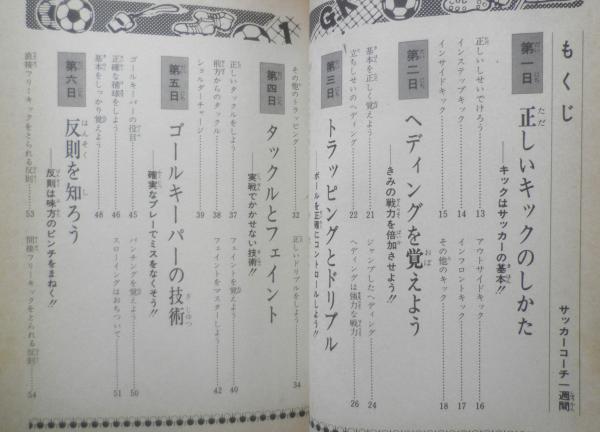 もくじ
サッカーコーチ一週間
第一日 正しいキックのしかた
――キックはサッカーの基本!!
正しいしせいでけろう 13
インステップキック 14
インサイドキック 15
アウトサイドキック 16
インフロントキック 17
その他のキック 18
第二日 ヘディングを覚えよう
――きみの戦力を倍加させよう!!
基本を正しく覚えよう 21
立ちしせいのヘディング 22
ジャンプしたヘディング 24
ヘディングは強力な戦力 26
第三日 トラッピングとドリブル
――ボールを正確にコントロールしよう!!
その他のトラッピング 32
正しいドリブルをしよう 34
第四日 タックルとフェイント
――実戦でかかせない技術!!
正しいタックルをしよう 37
前方からのタックル 38
ショルダーチャージ 39
フェイントを覚えよう 40
フェイントをマスターしよう 42
第五日 ゴールキーパーの技術
――確実なプレーでミスをなくそう!!
ゴールキーパーの役目 45
正確な捕球をしよう 46
基本をしっかり覚えよう 48
パンチングを覚えよう 50
スローイングはおちついて 51
第六日 反則を知ろう
――反則は味方のピンチをまねく!!
直接フリーキックをとられる反則 53
間接フリーキックをとられる反則 54
G.K
1